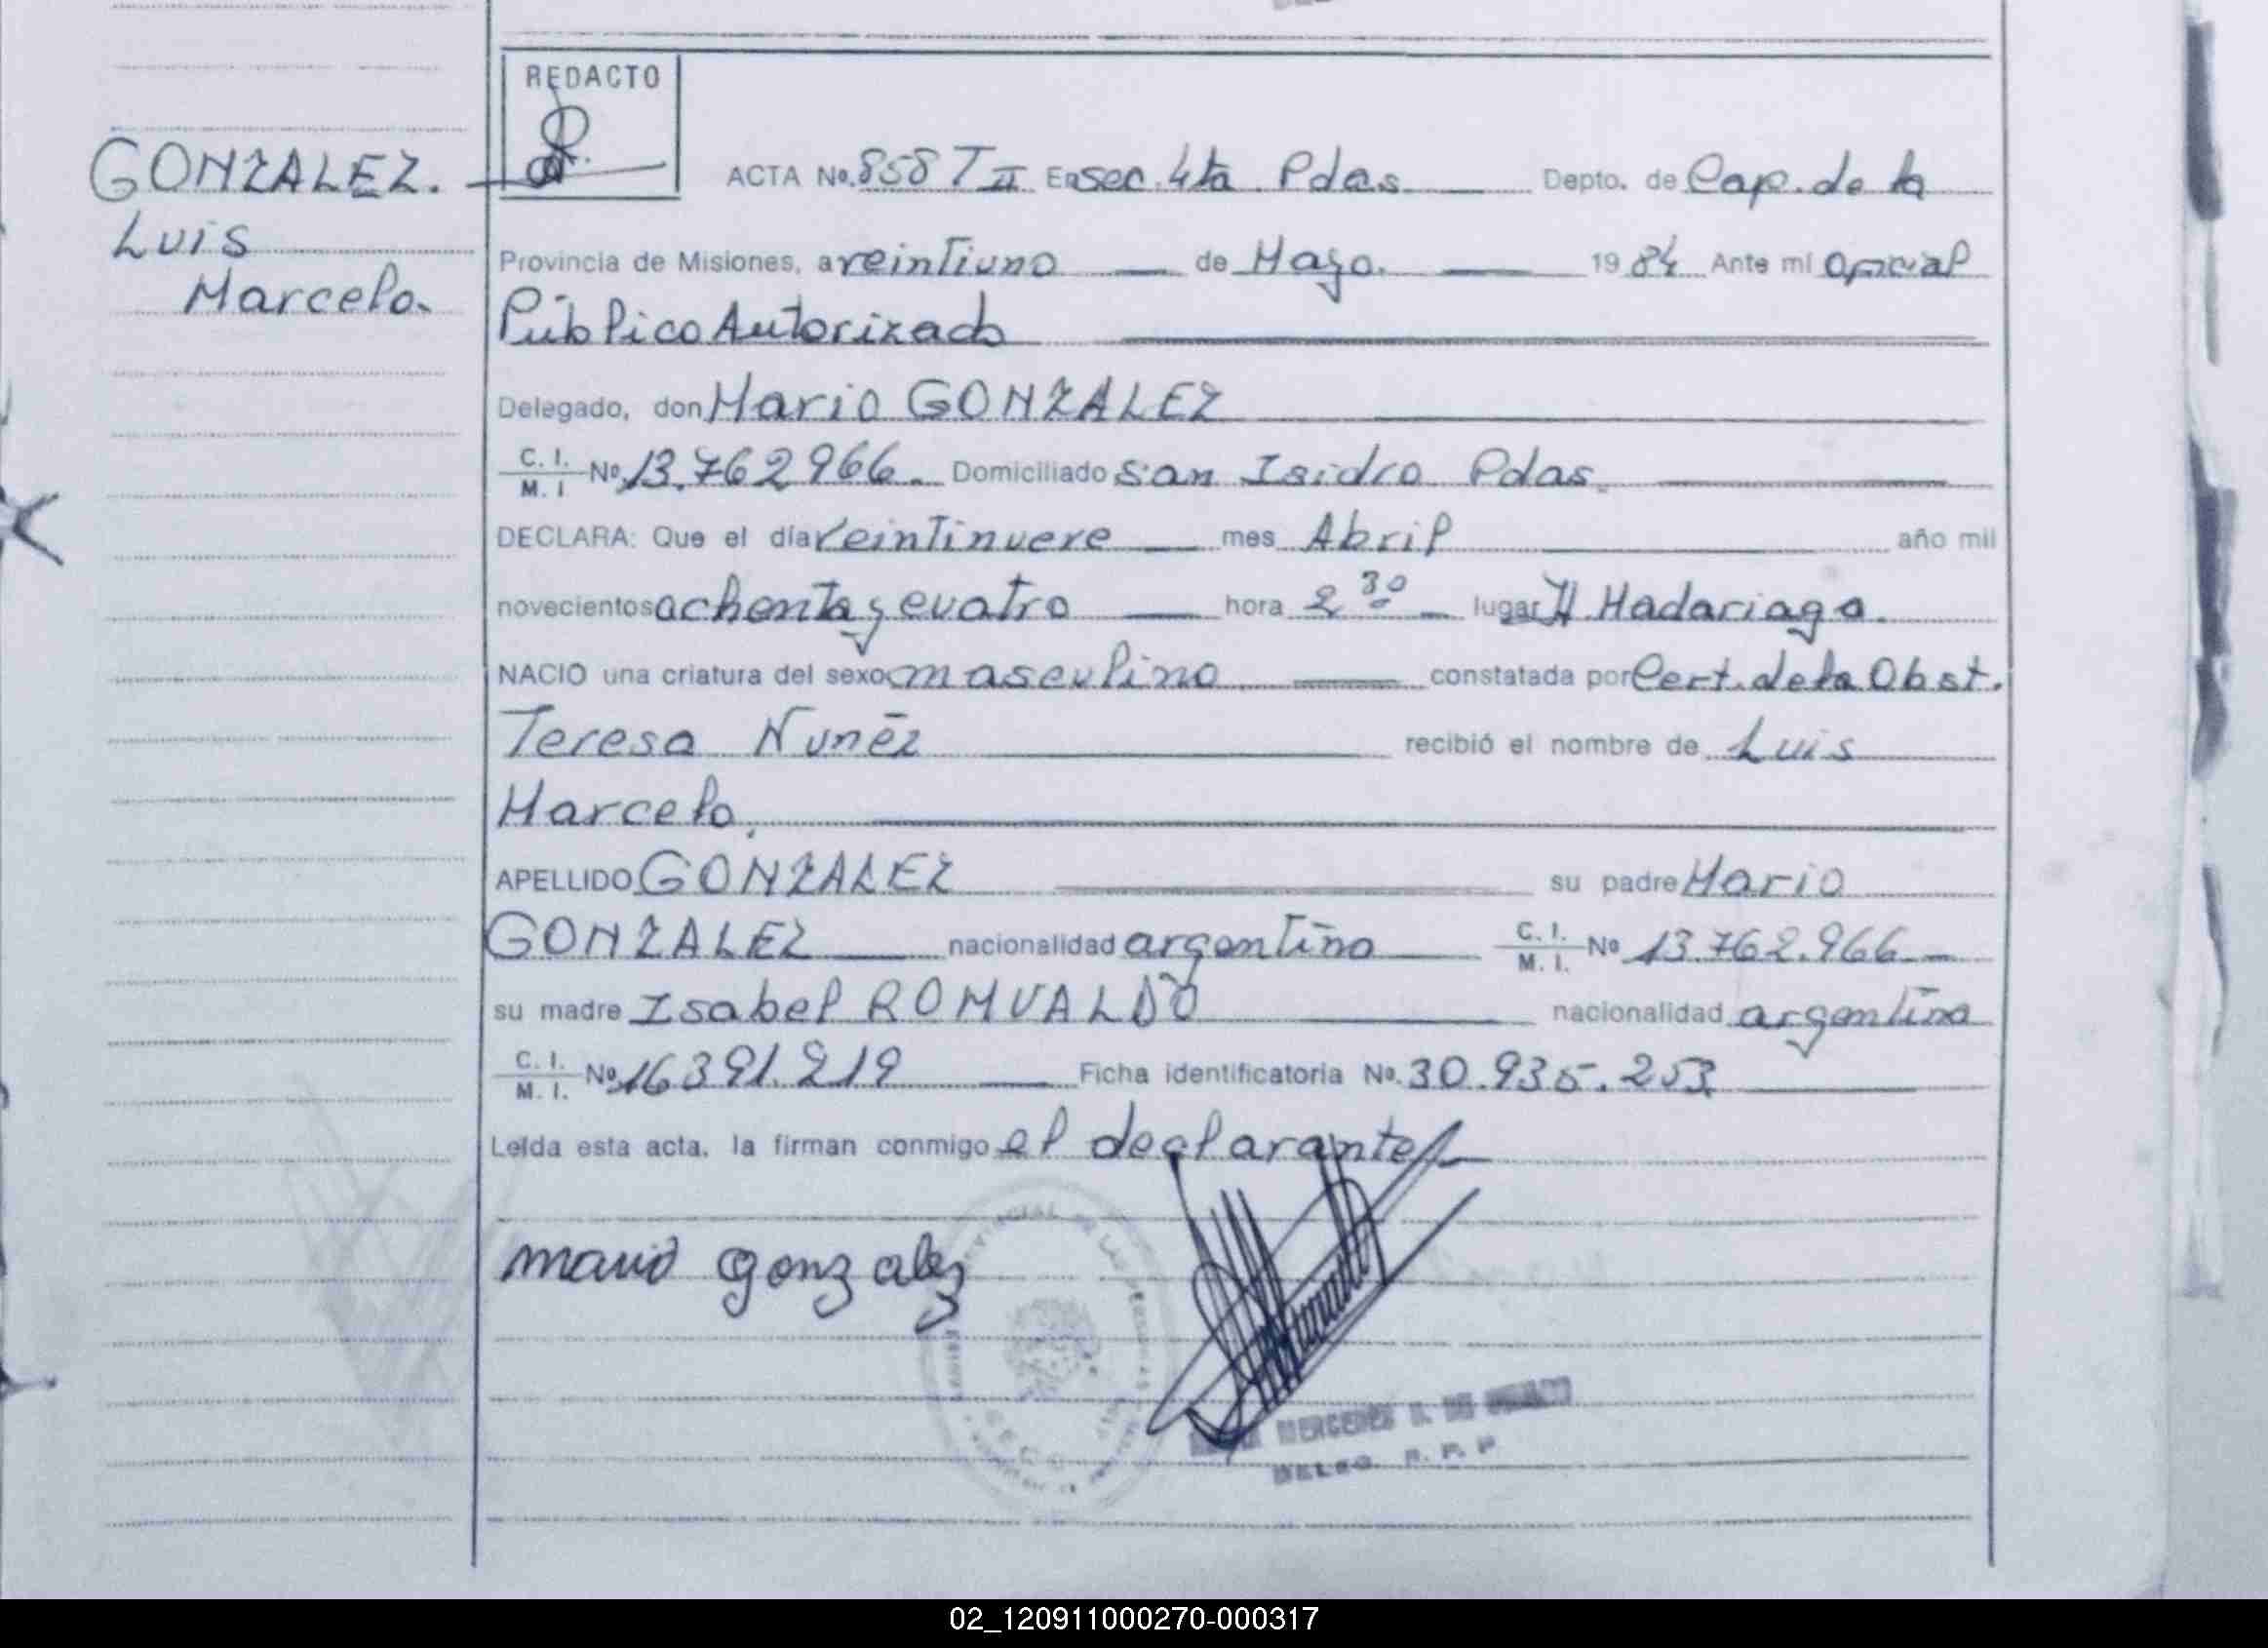 REDACTO
GONZALEZ.
Luis
Marcelo.
ACTA No. 858 T II En sec. 4ta. Pdas Depto. de Cap. de la
Provincia de Misiones, a veintiuno de Mayo. 19 84 Ante mi Oficial
Público Autorizado
Delegado, don Mario GONZALEZ
C. I.
M. I No. 13.762966. Domiciliado San Isidro Pdas.
DECLARA: Que el día veintinueve mes Abril año mil
novecientos ochenta y cuatro hora 2 30 lugar H. Madariaga.
NACIO una criatura del sexo masculino constatada por Cert. de la Obst.
Teresa Nuñez recibió el nombre de Luis
Marcelo.
APELLIDO GONZALEZ su padre Mario
GONZALEZ nacionalidad argentino C. I.
M. I. No 13.762.966
su madre Isabel ROMUALDO nacionalidad argentina
C. I.
M. I. No. 16391.219 Ficha identificatoria No. 30.935.253
Leída esta acta, la firman conmigo el declarante
mario gonzalez
MERCEDES
02_120911000270-000317